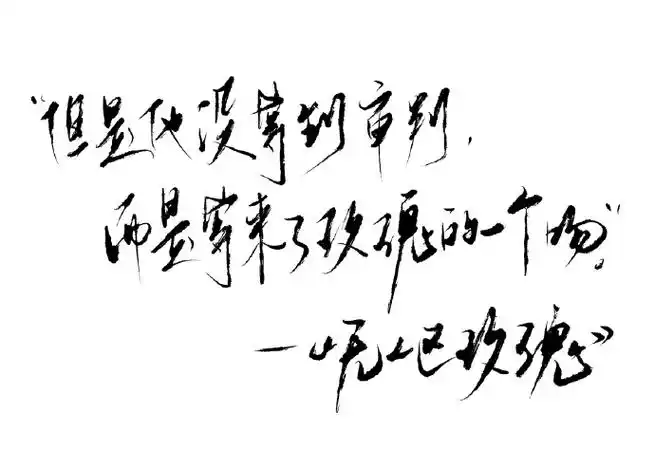 “但是他没等到审判，
而是等来了玫瑰的一个吻”。
—《无人区玫瑰》